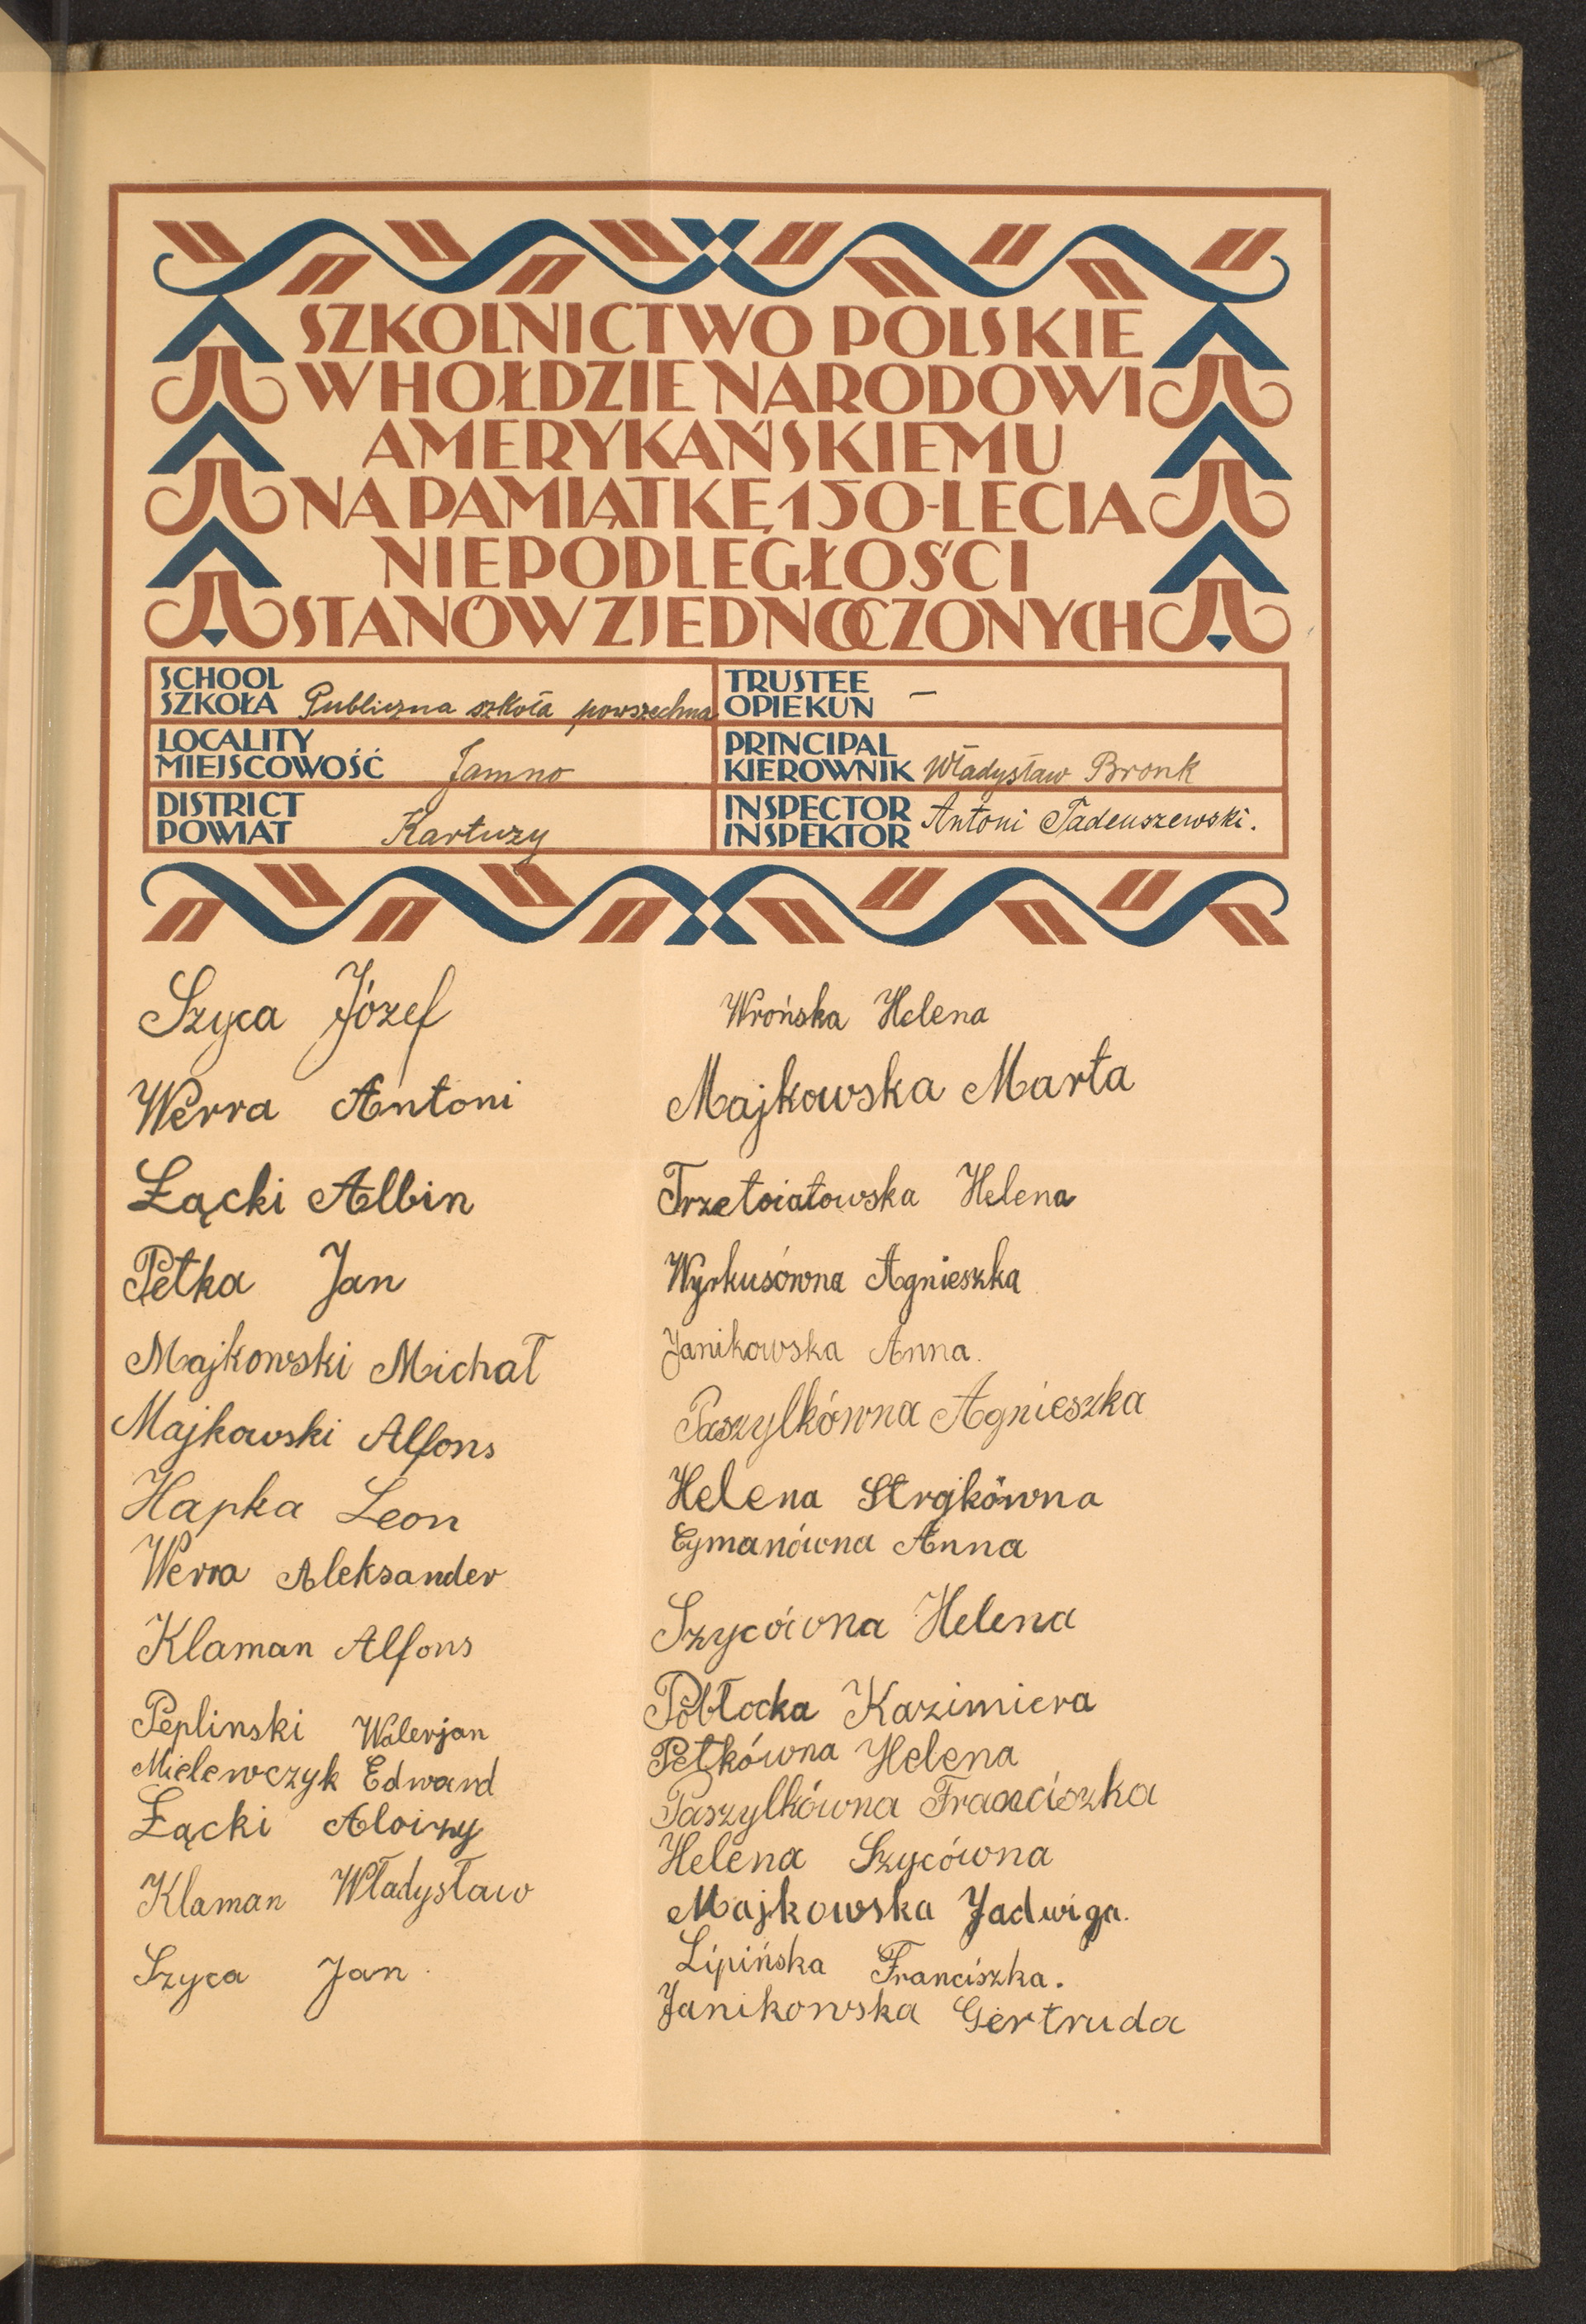 SZKOLNICTWO POLSKIE
W HOŁDZIE NARODOWI
AMERYKAŃSKIEMU
NA PAMIĄTKĘ 150-LECIA
NIEPODLEGŁOŚCI
STANÓW ZJEDNOCZONYCH
SCHOOL
SZKOŁA Publiczna szkoła powszechna
LOCALITY
MIEJSCOWOŚĆ Jamno
DISTRICT
POWIAT Kartuzy
TRUSTEE
OPIEKUN —
PRINCIPAL
KIEROWNIK Władysław Bronk
INSPECTOR
INSPEKTOR Antoni Tadeuszewski.
Szyca Józef
Werra Antoni
Łącki Albin
Petka Jan
Majkowski Michał
Majkowski Alfons
Hapka Leon
Werra Aleksander
Klaman Alfons
Peplinski Walerjan
Mielewczyk Edward
Łącki Aloizy
Klaman Władysław
Szyca Jan
Wrońska Helena
Majkowska Marta
Trzetoiatowska Helena
Wyrkusówna Agnieszka
Janikowska Anna.
Paszylkówna Agnieszka
Helena
Cymanówna Anna
Szycówna Helena
Pobłocka Kazimiera
Petkówna Helena
Paszylkówna Franciszka
Helena Szycówna
Majkowska Jadwiga.
Lipińska Franciszka.
Janikowska Gertruda